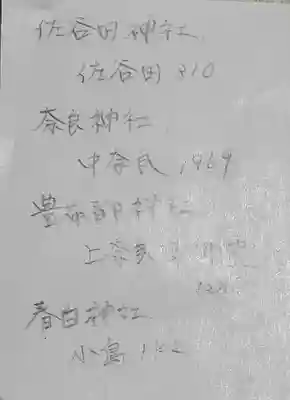 佐谷田神社
佐谷田 810
奈良神社
中奈良 1969
神社
上奈良
春日神社
小島